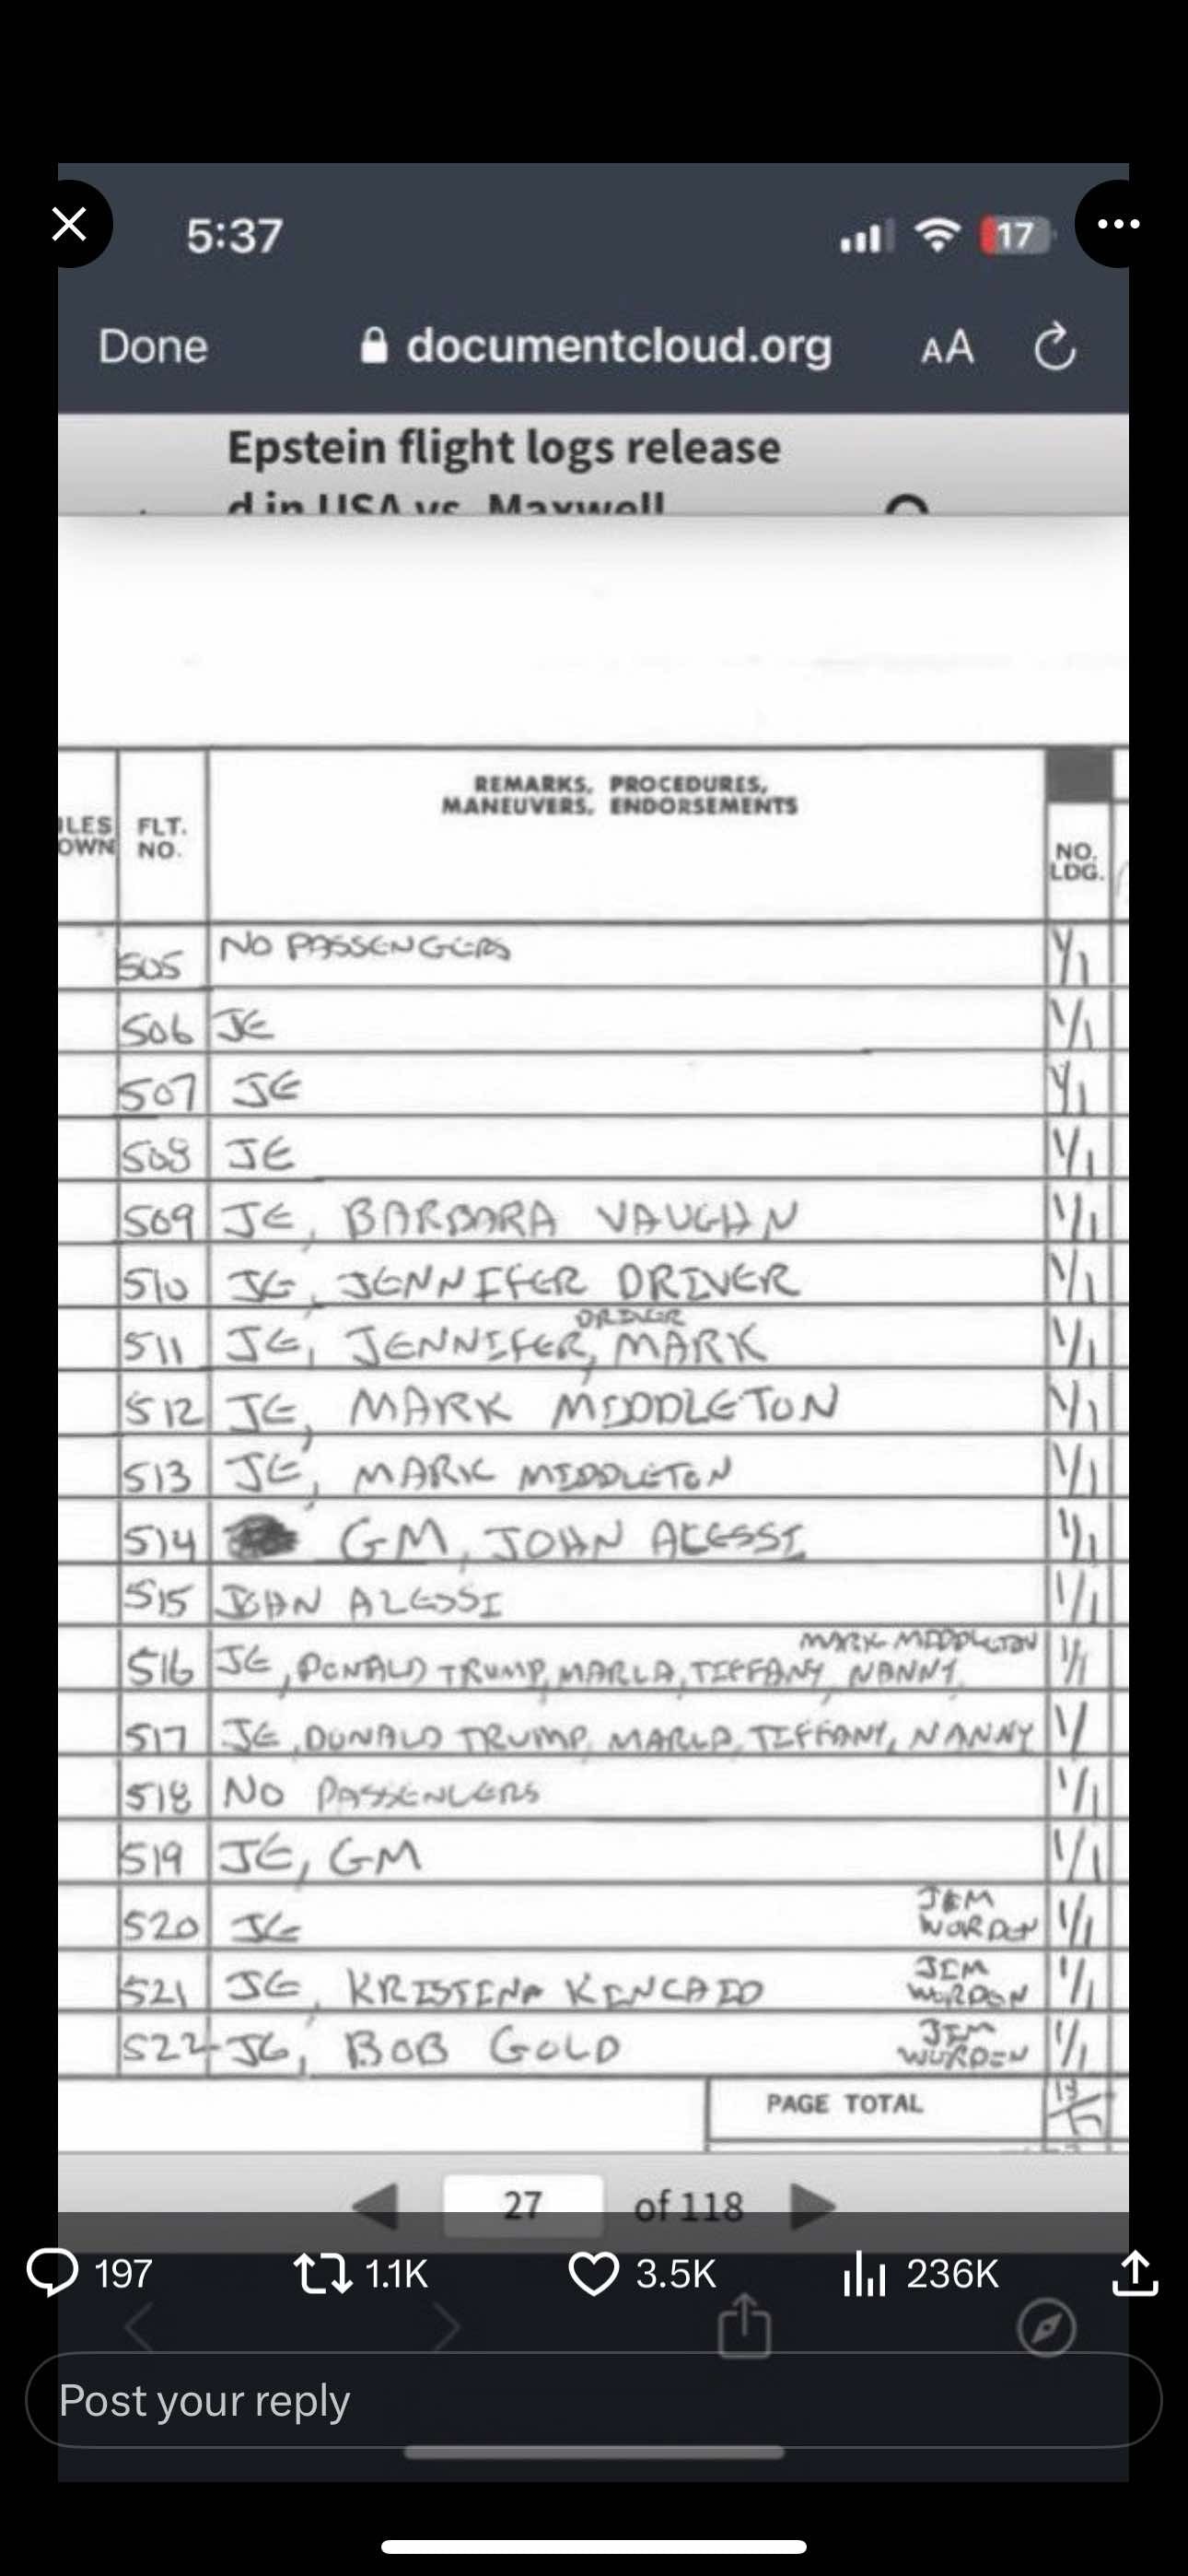 5:37
17
Done
documentcloud.org
AA
Epstein flight logs release
d in USA vs. Maxwell
REMARKS, PROCEDURES,
MANEUVERS, ENDORSEMENTS
ILES
OWN
FLT.
NO.
NO.
LDG.
505 NO PASSENGERS 1/1
506 JE 1/1
507 JE 1/1
508 JE 1/1
509 JE, BARBARA VAUGHN 1/1
510 JE, JENNIFER DRIVER 1/1
DRIVER
511 JE, JENNIFER, MARK 1/1
512 JE, MARK MIDDLETON 1/1
513 JE, MARK MIDDLETON 1/1
514 GM, JOHN ALESSI 1/1
515 JOHN ALESSI 1/1
MARK MIDDLETON
516 JE, DONALD TRUMP, MARLA, TIFFANY, NANNY 1/1
517 JE, DONALD TRUMP, MARLA, TIFFANY, NANNY 1/
518 NO PASSENGERS 1/1
519 JE, GM 1/1
JIM
520 JE WORDEN 1/1
JIM
521 JE, KRISTINA KINCAID WORDEN 1/1
JIM
522 JE, BOB GOLD WORDEN 1/1
PAGE TOTAL
27 of 118
197 1.1K 3.5K 236K
Post your reply